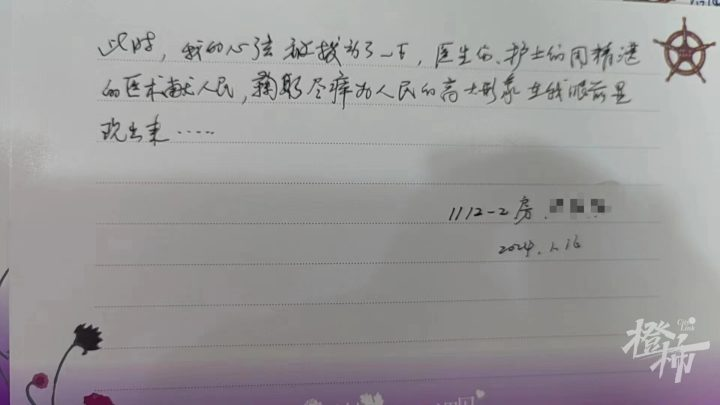 此时，我的心弦被拨动了一下，医生们、护士们用精湛
的医术献人民，鞠躬尽瘁为人民的高大形象在我眼前呈
现出来……
1112-2房
2024.1.16
橙柿
City Link